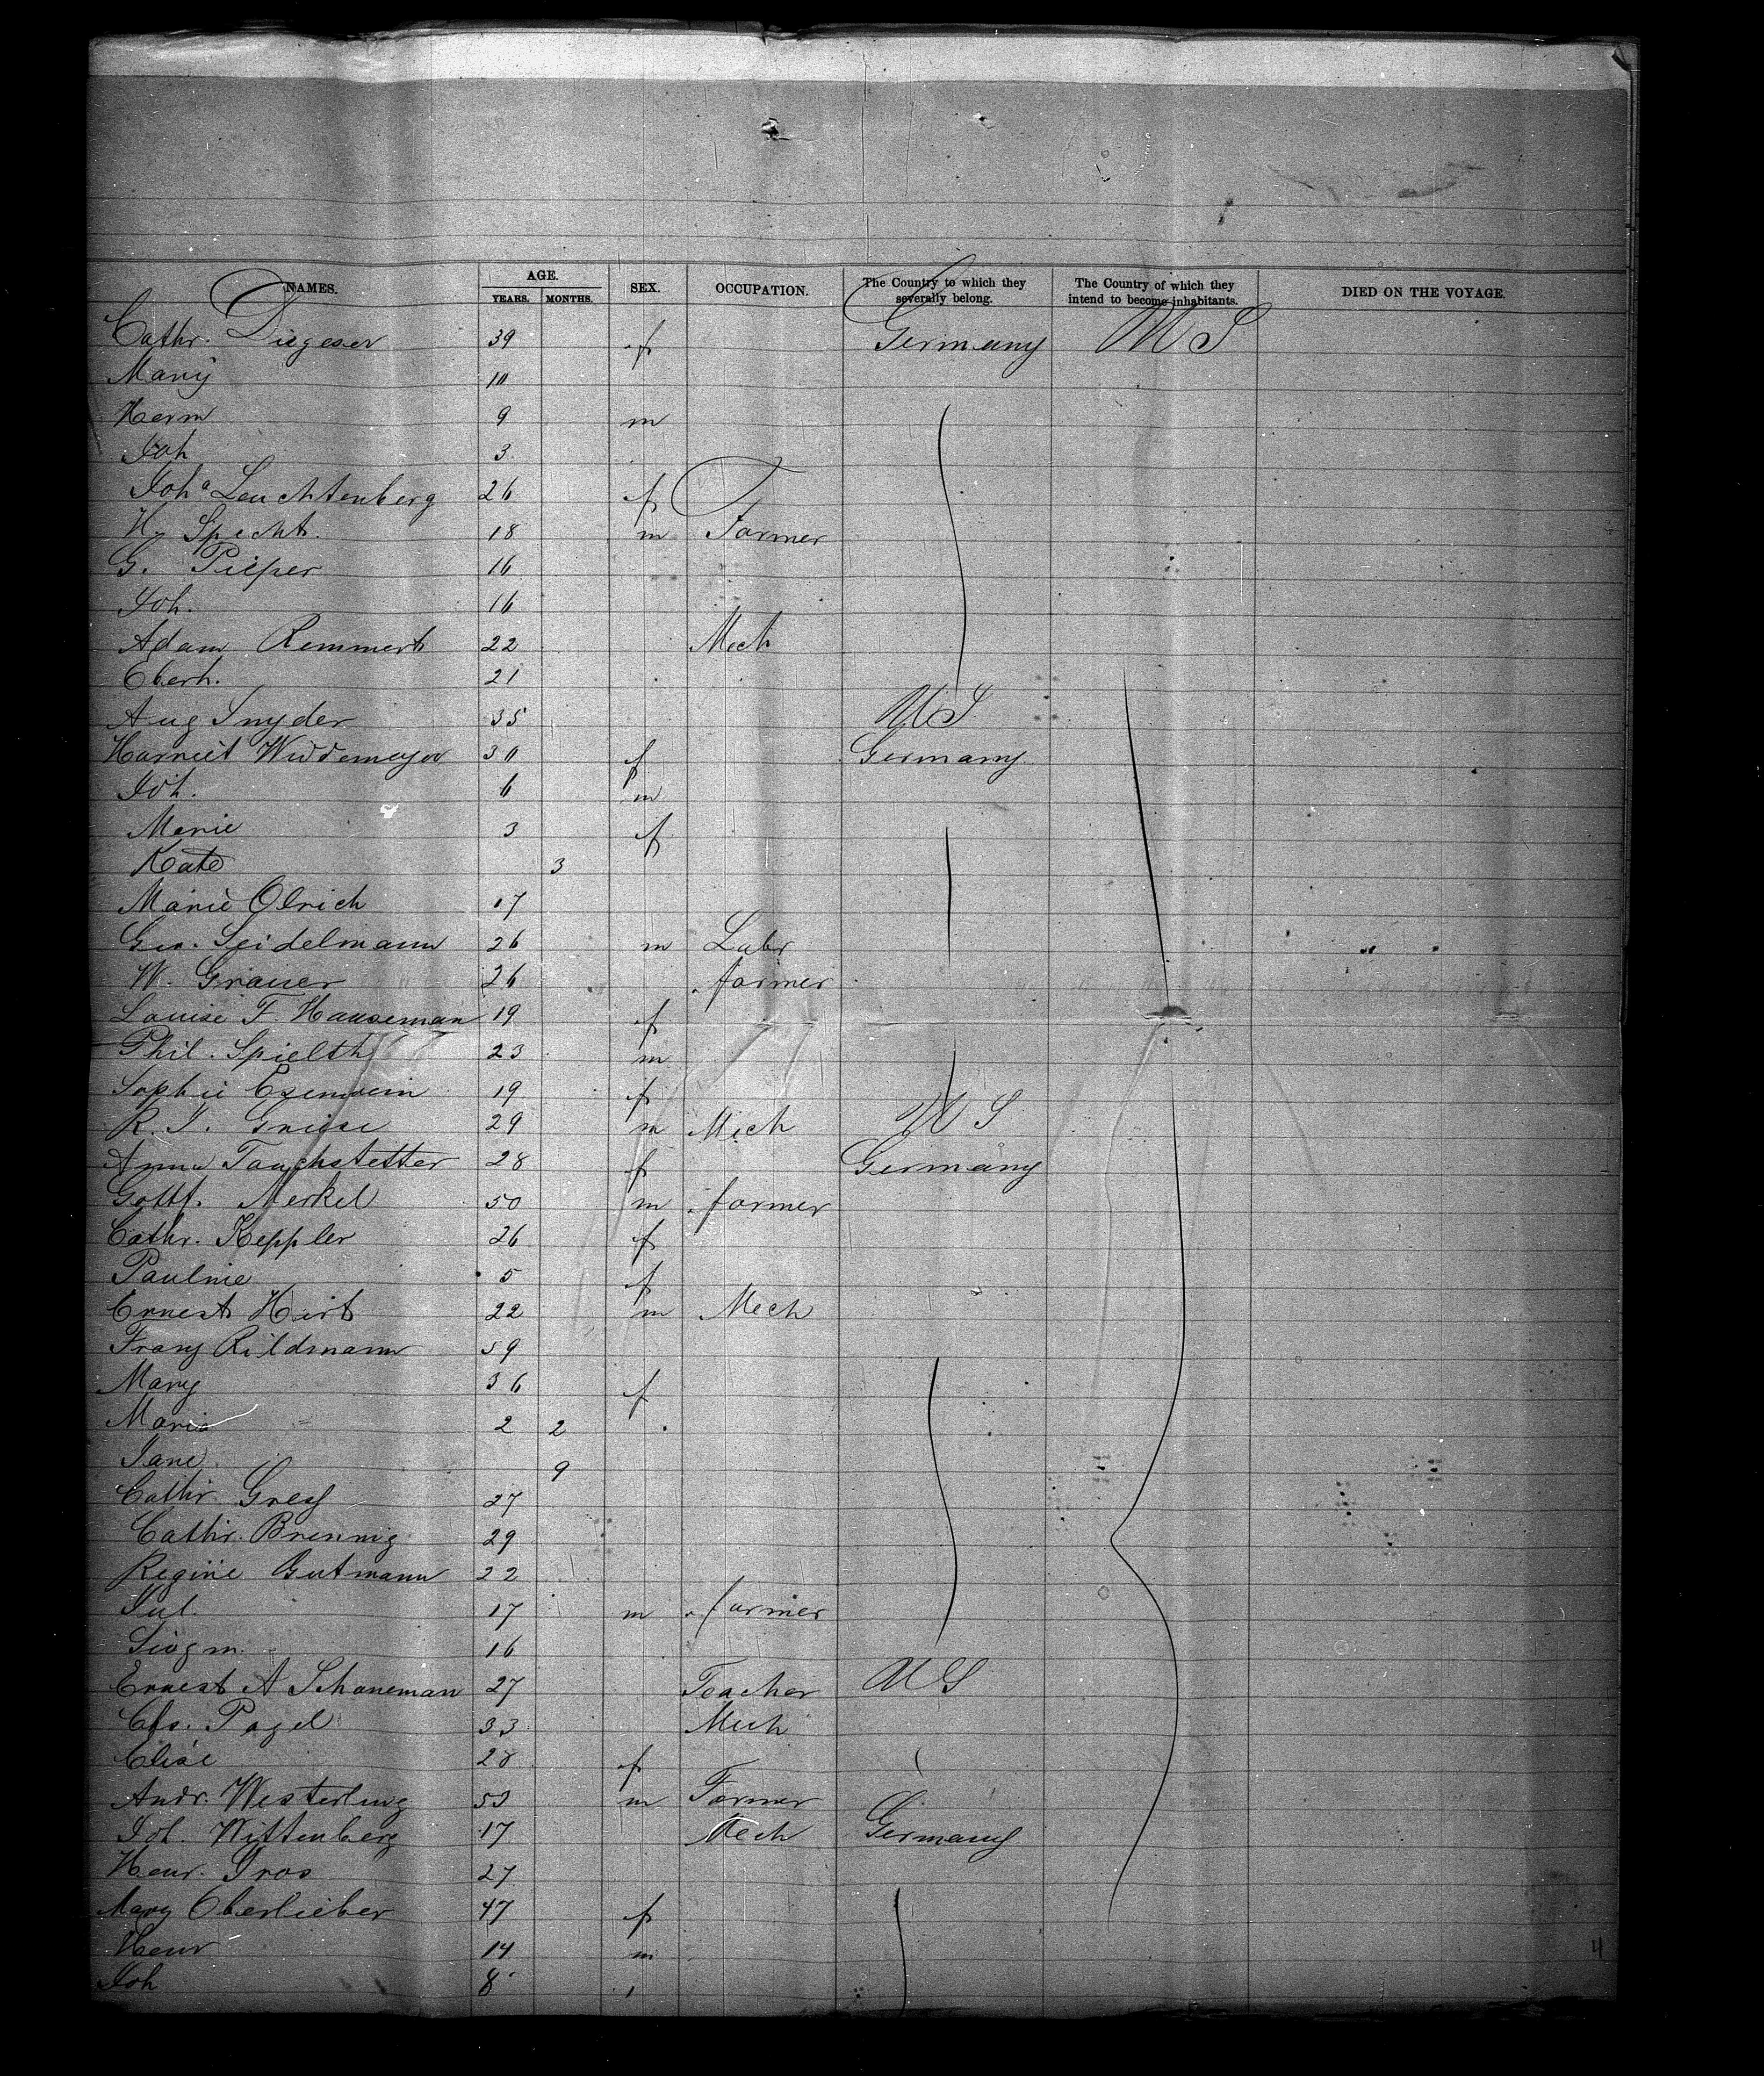 NAMES. AGE. SEX. OCCUPATION. The Country to which they severally belong. The Country of which they intend to become inhabitants. DIED ON THE VOYAGE.
YEARS. MONTHS.
Cathr. Diegeser 39 f Germany US
Mary 10
Herm 9 m
Joh 3
Joha Leuchtenberg 26 f
Hy Specht. 18 m Farmer
G. Pieper 16
Joh. 16
Adam Remmert 22 Mech
Eberh. 21
Aug Snyder 35 US
Harriet Widdemeyer 30 f Germany
Joh. 6 m
Marie 3 f
Kate 3
Marie Olrich 17
Geo. Seidelmann 26 m Labr
W. Grauer 26 farmer
Louise F. Hauseman 19 f
Phil. Spielth 23 m
Sophie Esenwein 19 f
R. J. Griese 29 m Mech US
Anna Tauchstetter 28 f Germany
Gottf. Merkel 50 m farmer
Cathr. Keppler 26 f
Pauline 5 f
Ernest Hirt 22 m Mech
Franz Rildmann 59
Mary 36 f
Maria 2 2
Jane 9
Cathr. 27
Cathr. Brennig 29
Regine Gutmann 22
Jul. 17 m farmer
Siegm. 16
Ernest A Schoneman 27 Teacher US
Chs. Pagel 33 Mech
Elise 28 f
Andr. Westerling 53 m Farmer
Joh. Wittenberg 17 Mech Germany
Henr. Gros 27
Mary Oberlieber 47 f
Henr 14 m
Joh 8
4